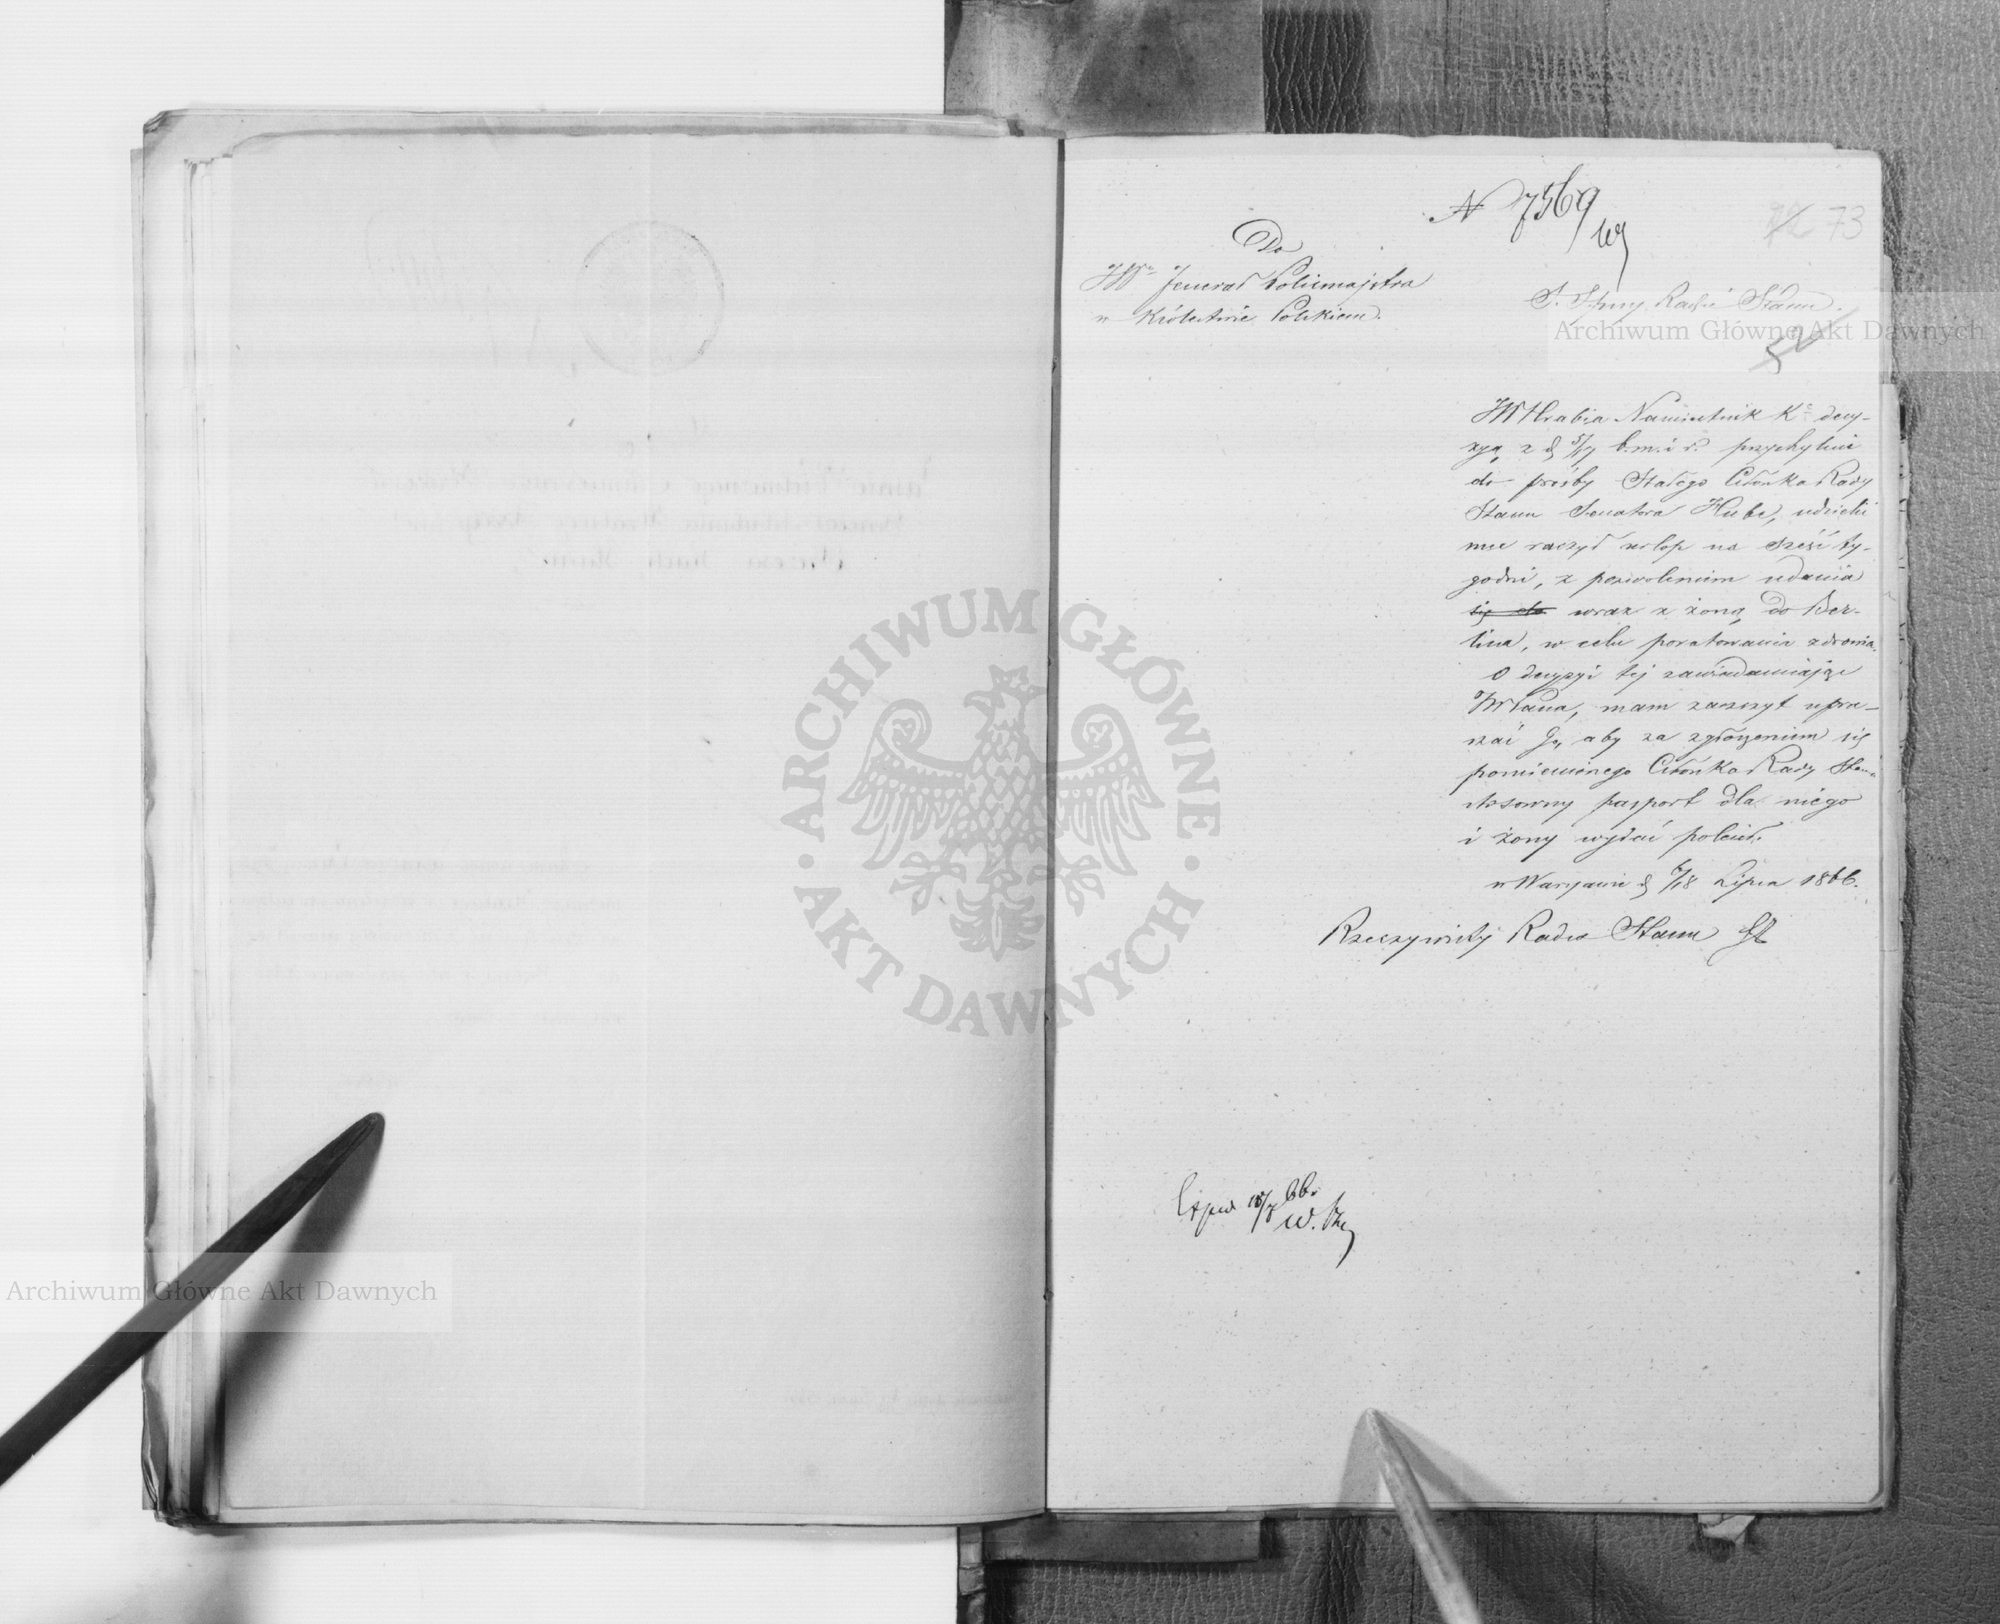 N 7569
73
Do
JW Jenerał Policmajstra
w Królestwie Polskiem.
Radzie Stanu.
JW Hrabia Namiestnik K decy-
zyą z d 5/17 b.m. i r. przychylnie
do prośby Stałego Członka Rady
Stanu Senatora Hube, udzielić
mu raczył urlop na sześć ty-
godni, z pozwoleniem udania
się do wraz z żoną do Ber-
lina, w celu poratowania zdrowia.
O decyzyi tej zawiadamiając
JWPana, mam zaszczyt upra-
szać Go, aby za zgłoszeniem się
pomienionego Członka Rady Stanu
stosowny pasport dla niego
i żony wydać polecił.
w Warszawie d 6/18 Lipca 1866.
Rzeczywisty Radca Stanu
18/7 66.
Archiwum Główne Akt Dawnych
ARCHIWUM GŁÓWNE AKT DAWNYCH
Archiwum Główne Akt Dawnych